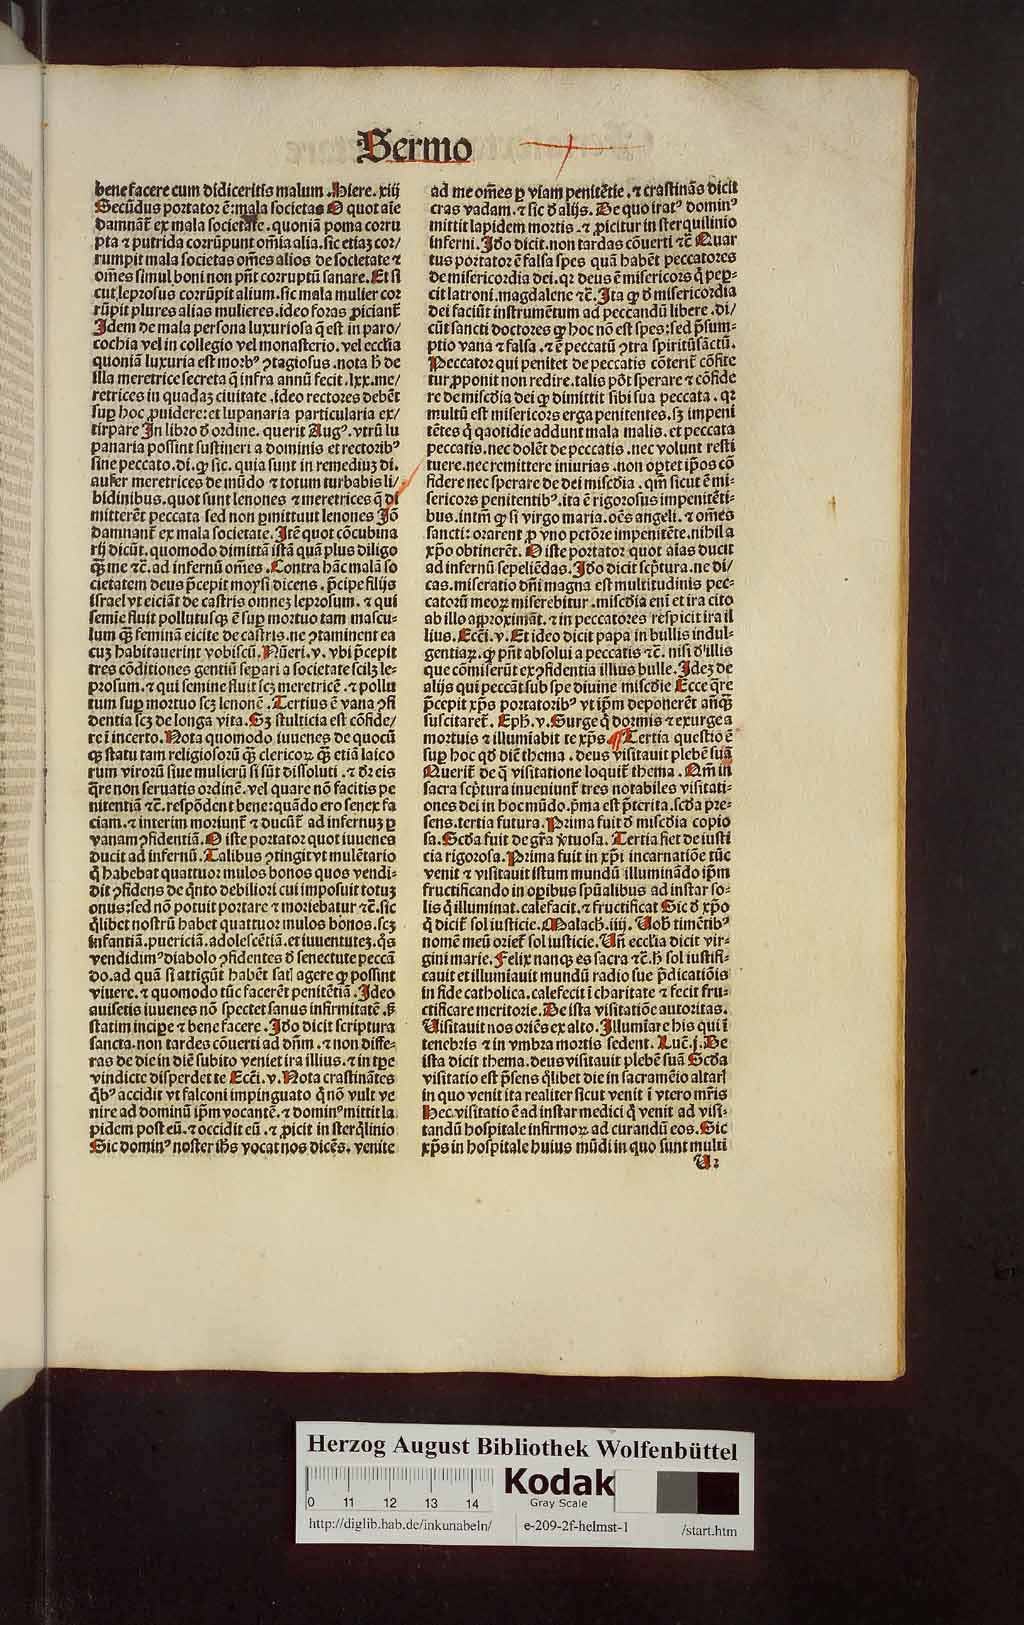 Sermo
bene facere cum didiceritis malum .Hiere. xiij
Secūdus portator ē: mala societas O quot aīe
damnāt̄ ex mala societate. quoniā poma corru
pta ⁊ putrida corrūpunt om̄ia alia. sic etiaꝫ cor/
rumpit mala societas om̄es alios de societate ⁊
om̄es simul boni non pn̄t corruptū sanare. Et si
cut leprosus corrūpit alium. sic mala mulier cor
rūpit plures alias mulieres. ideo foras ꝓiciant̄
Idem de mala persona luxuriosa q̄ est in paro/
cochia vel in collegio vel monasterio. vel ecclīa
quoniā luxuria est morbꝰ ꝯtagiosus. nota ħ de
illa meretrice secreta q̄ infra annū fecit .lxx. me/
retrices in quadaꝫ ciuitate. ideo rectores debēt
suꝑ hoc ꝓuidere: et lupanaria particularia ex/
tirpare In libro đ ordine. querit Augꝰ. vtrū lu
panaria possint sustineri a dominis et rectoribꝰ
sine peccato. di. ꝙ sic. quia sunt in remediuꝫ di.
aufer meretrices de mūdo ⁊ totum turbabis li/
bidinibus. quot sunt lenones ⁊ meretrices q̄ di
mitterēt peccata sed non ꝑmittuut lenones Iō
damnant̄ ex mala societate. Itē quot cōcubina
rij dicūt. quomodo dimittā istā quā plus diligo
q̄ꝫ me ⁊c̄. ad infernū om̄es. Contra hāc malā so
cietatem deus p̄cepit moysi dicens. p̄cipe filijs
israel vt eiciāt de castris omneꝫ leprosum. ⁊ qui
semīe fluit pollutusqꝫ ē suꝑ mortuo tam mascu-
lum q̄ꝫ feminā eicite de castris. ne ꝯtaminent ea
cuꝫ habitauerint vobiscū. Nūeri. v. vbi p̄cepit
tres cōditiones gentiū seꝑari a societate scilꝫ le-
prosum. ⁊ qui semine fluit scꝫ meretricē. ⁊ pollu
tum suꝑ mortuo scꝫ lenonē. Tertius ē vana ꝯfi
dentia scꝫ de longa vita. Sꝫ stulticia est cōfide/
re ī incerto. Nota quomodo iuuenes de quocū
qꝫ statu tam religiosorū q̄ꝫ clericoꝝ q̄ꝫ etiā laico
rum virorū siue mulierū si sūt dissoluti. ⁊ đr eis
q̄re non seruatis ordinē. vel quare nō facitis pe
nitentiā ⁊c̄. respōdent bene: quādo ero senex fa
ciam. ⁊ interim moriunt̄ ⁊ ducūt̄ ad infernuꝫ ꝑ
vanam ꝯfidentiā. O iste portator quot iuuenes
ducit ad infernū. Talibus ꝯtingit vt mulētario
q̄ habebat quattuor mulos bonos quos vendi-
dit ꝯfidens de q̄nto debiliori cui imposuit totuꝫ
onus: sed nō potuit portare ⁊ moriebatur ⁊c̄. sic
q̄libet nostrū habet quattuor mulos bonos. scꝫ
infantiā. puericiā. adolescētiā. et iuuentuteꝫ. q̄s
vendidimꝰ diabolo ꝯfidentes đ senectute peccā
do. ad quā si attigūt habēt satꝭ agere ꝙ possint
viuere. ⁊ quomodo tūc facerēt penitētiā. Ideo
auisetis iuuenes nō spectet sanus infirmitatē. ꝫ
statim incipe ⁊ bene facere. Iđo dicit scriptura
sancta. non tardes cōuerti ad dn̄m. ⁊ non diffe-
ras de die in diē subito veniet ira illius. ⁊ in tꝑe
vindicte disperdet te Eccī. v. Nota crastinātes
q̄bꝰ accidit vt falconi impinguato q̄ nō vult ve
nire ad dominū ip̄m vocantē. ⁊ dominꝰ mittit la
pidem post eū. ⁊ occidit eū. ⁊ ꝓicit in sterq̄linio
Sic dominꝰ noster ih̄s vocat nos dicēs. venite
ad me om̄es ꝑ viam penitētie. ⁊ crastinās dicit
cras vadam. ⁊ sic đ alijs. De quo iratꝰ dominꝰ
mittit lapidem mortis. ⁊ ꝓicitur in sterquilinio
inferni. Iđo dicit. non tardas cōuerti ⁊c̄ Quar
tus portator ē falsa spes quā habēt peccatores
de misericordia dei. qꝛ deus ē misericors q̄ peꝑ-
cit latroni. magdalene ⁊c̄. Ita ꝙ đ misericordia
dei faciūt instrumētum ad peccandū libere. di/
cūt sancti doctores ꝙ hoc nō est spes: sed p̄sum-
ptio vana ⁊ falsa. ⁊ ē peccatū ꝯtra spiritūsāctū.
Peccator qui penitet de peccatis cōterit̄ cōfite
tur ꝓponit non redire. talis pōt sperare ⁊ cōfide
re de misc̄dia dei ꝙ dimittit sibi sua peccata. qꝛ
multū est misericors erga penitentes. sꝫ impeni
tētes q̄ qaotidie addunt mala malis. et peccata
peccatis. nec dolēt de peccatis. nec volunt resti
tuere. nec remittere iniurias. non optet ip̄os cō
fidere nec sperare de dei misc̄dia. qm̄ sicut ē mi-
sericors penitentibꝰ. ita ē rigorosus impenitēti-
bus. intm̄ ꝙ si virgo maria. oēs angeli. ⁊ om̄es
sancti: orarent ꝑ vno pctōre impenitēte. nihil a
xp̄o obtinerēt. O iste portator quot aīas ducit
ad infernū sepeliēdas. Iđo dicit scp̄tura. ne di/
cas. miseratio dn̄i magna est multitudinis pec-
catorū meoꝝ miserebitur. misc̄dia enī et ira cito
ab illo approximāt. ⁊ in peccatores respicit ira il
lius. Eccī. v. Et ideo dicit papa in bullis indul-
gentiaꝝ. ꝙ pn̄t absolui a peccatis ⁊c̄. nisi đ illis
que cōmiserūt ex ꝯfidentia illius bulle. Ideꝫ de
alijs qui peccāt sub spe diuine misc̄die Ecce q̄re
p̄cepit xp̄s portatoribꝰ vt ip̄m deponerēt anq̄ꝫ
suscitaret̄. Eph. v. Surge q̄ dormis ⁊ exurge a
mortuis ⁊ illumiabit te xp̄s ¶ Tertia questio ē
suꝑ hoc qđ diē thema. deus visitauit plebē suā
Querit̄ de q̄ visitatione loquit̄ thema. Qm̄ in
sacra scp̄tura inueniunt̄ tres notabiles visitati-
ones dei in hoc mūdo. p̄ma est p̄terita. scđa pre-
sens. tertia futura. Prima fuit đ misc̄dia copio
sa. Scđa fuit de gr̄a v̄tuosa. Tertia fiet de iusti
cia rigorosa. Prima fuit in xp̄i incarnatiōe tūc
venit ⁊ visitauit istum mundū illuminādo ip̄m
fructificando in oꝑibus spūalibus ad instar so-
lis q̄ illuminat. calefacit. ⁊ fructificat Sic đ xp̄o
q̄ dicit̄ sol iusticie. Malach. iiij. Uob̄ timētibꝰ
nomē meū oriet̄ sol iusticie. Uñ ecclīa dicit vir-
gini marie. Felix nanqꝫ es sacra ⁊c̄. ħ sol iustifi-
cauit et illumiauit mundū radio sue p̄dicatiōis
in fide catholica. calefecit ī charitate ⁊ fecit fru-
ctificare meritorie. De ista visitatiōe autoritas.
Uisitauit nos oriēs ex alto. Illumīare his qui ī
tenebris ⁊ in vmbra mortis sedent. Luc̄. j. De
ista dicit thema. deus visitauit plebē suā Scđa
visitatio est p̄sens q̄libet die in sacramēto altarꝭ
in quo venit ita realiter sicut venit ī vtero mr̄is
Hec visitatio ē ad instar medici q̄ venit ad visi-
tandū hospitale infirmoꝝ ad curandū eos. Sic
xp̄s in hospitale huius mūdi in quo sunt multi
U 2
Herzog August Bibliothek Wolfenbüttel
0 11 12 13 14
Kodak
Gray Scale
http://diglib.hab.de/inkunabeln/ e-209-2f-helmst-1 /start.htm